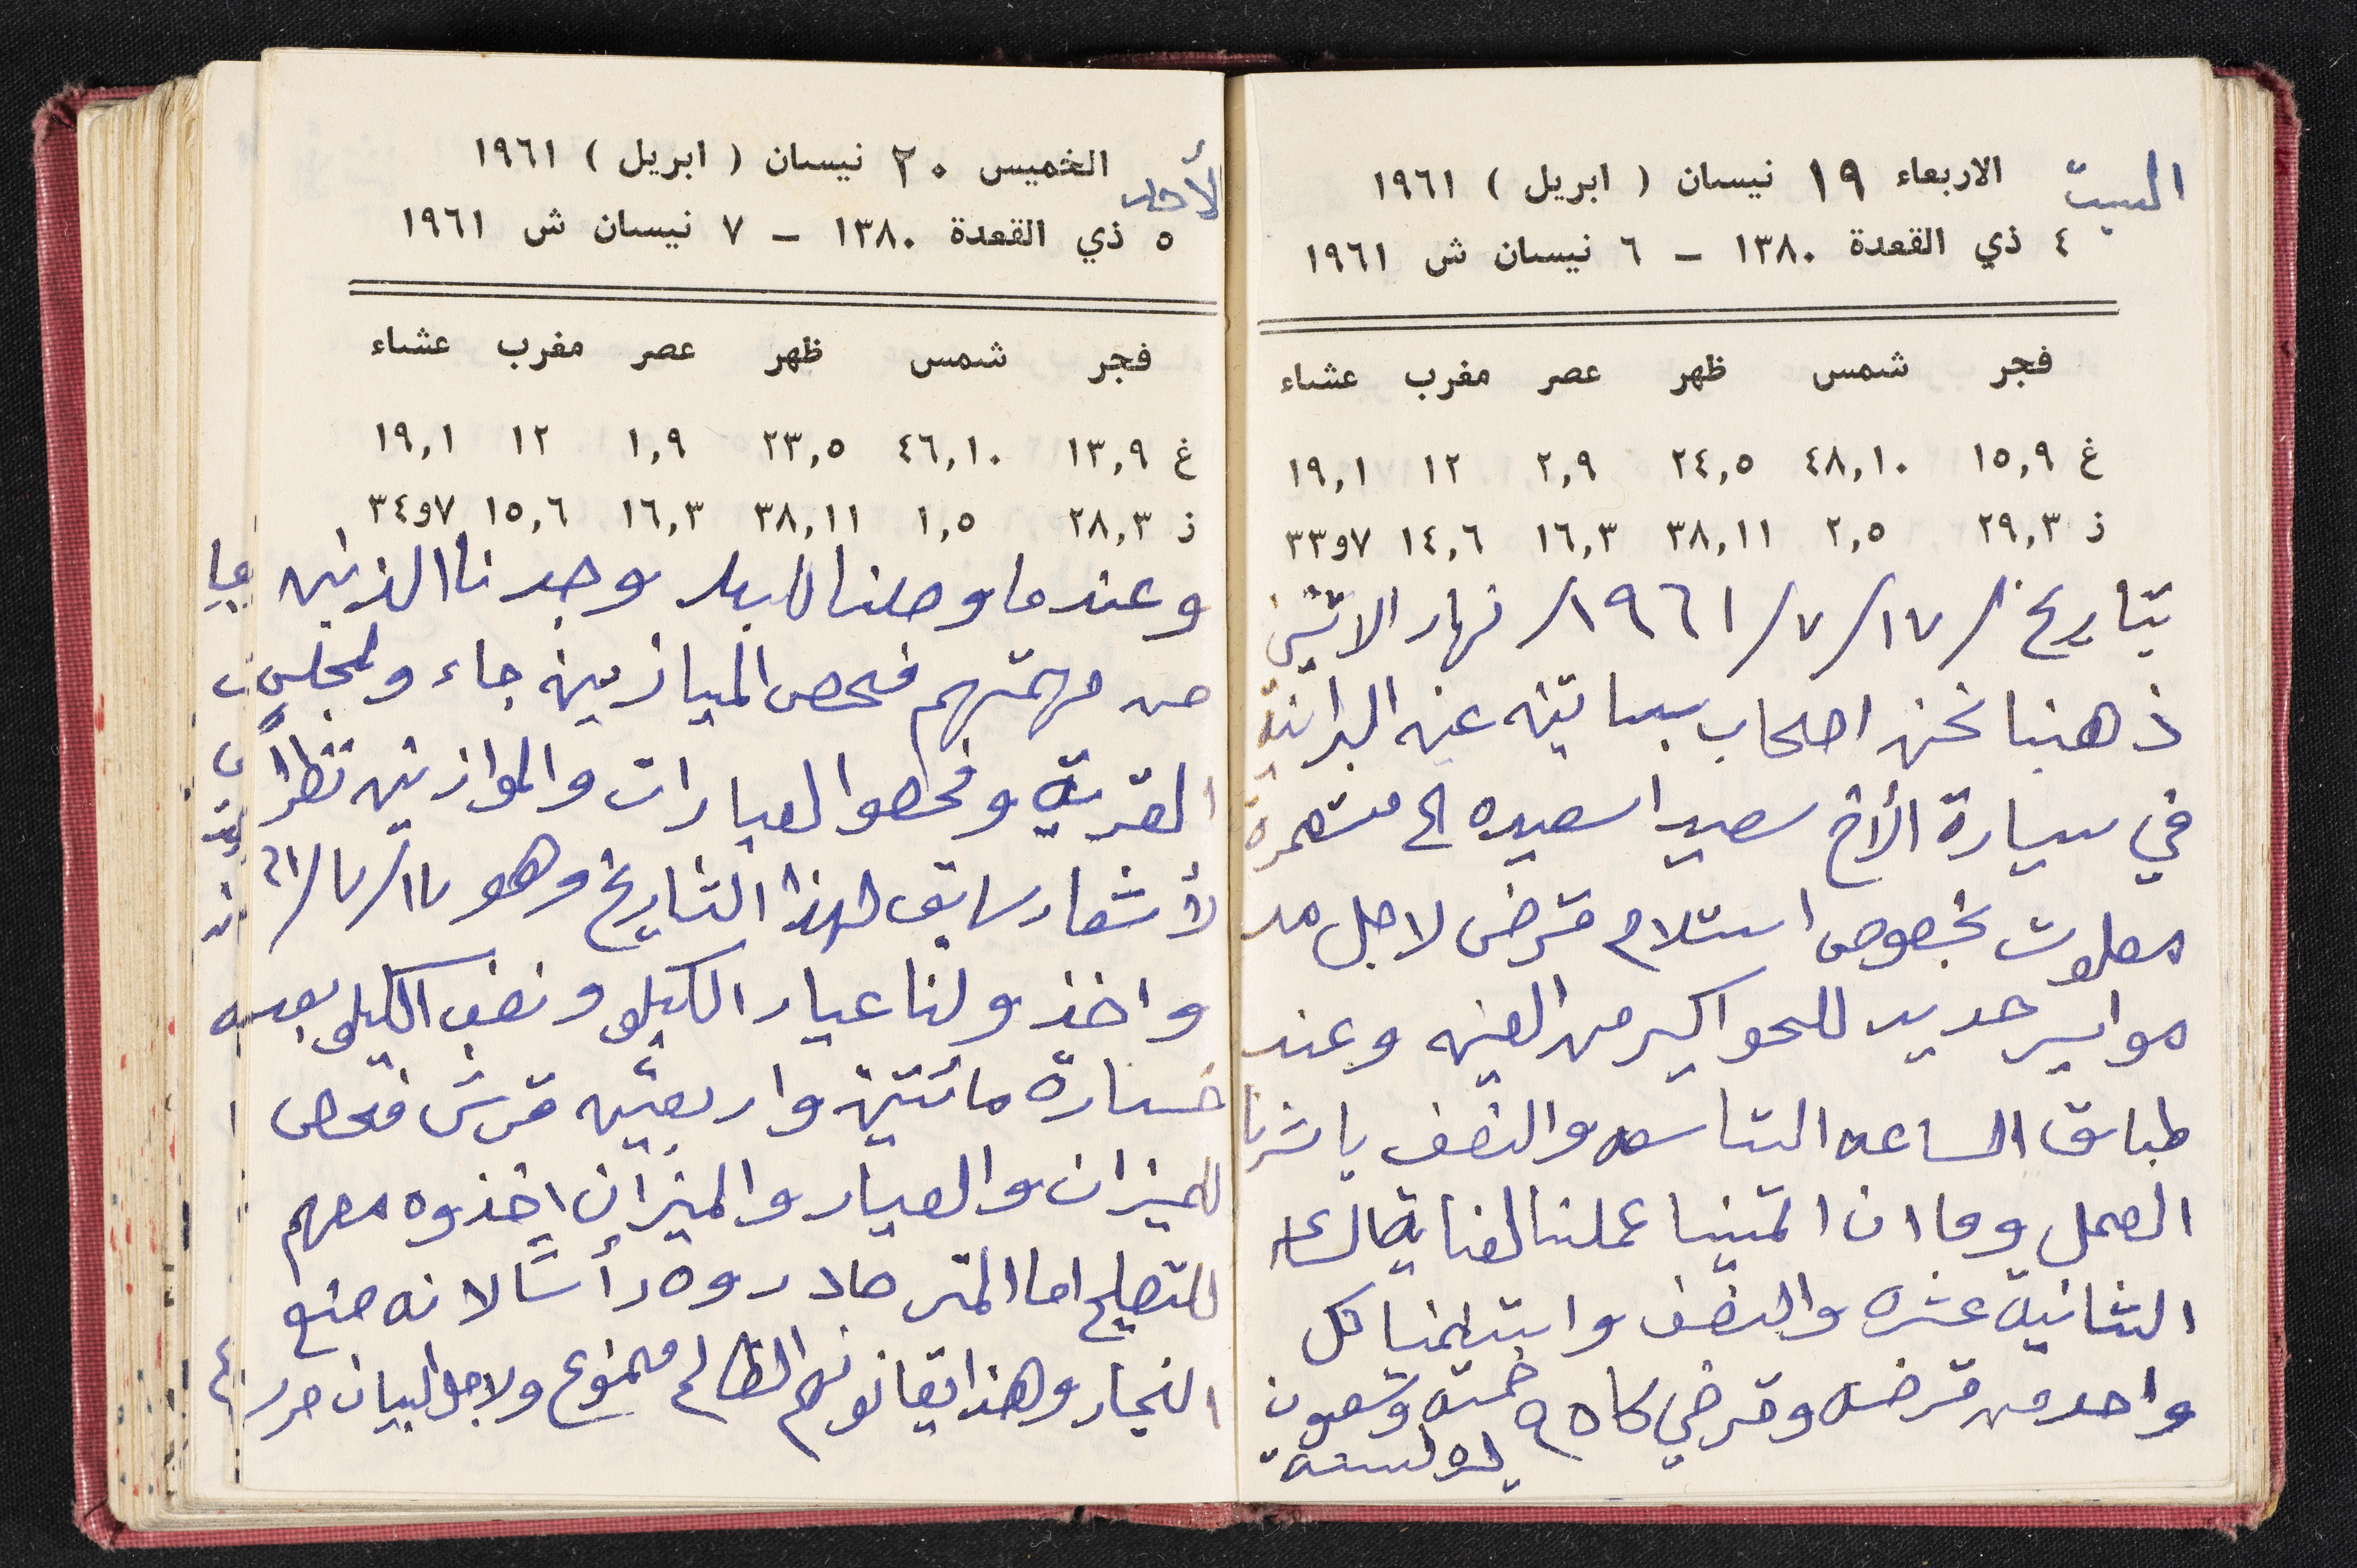 السبت
الاربعاء ١٩ نيسان ( ابريل ) ١٩٦١
٤ ذي القعدة ١٣٨٠ - ٦ نيسان ش ١٩٦١
فجر شمس ظهر عصر مغرب عشاء
غ ١٥,٩ ٤٨,١٠ ٢٤,٥ ٢,٩ ١٢ ١٩,١
ز ٢٩,٣ ٢,٥ ٣٨,١١ ١٦,٣ ١٤,٦ ٧و٣٣
بتاريخ /١٧/٧/١٩٦١/ نهار الاثنين
ذهبنا نحن اصحاب بساتين عين البرانية
في سيارة الأخ سعيد اسعيده الى مستعمرة
معلوت بخصوص استلام قرض لاجل مد
مواسير حديد للحواكير من العين وعند
طباق الساعه التاسعه والنصف باشرنا
العمل وما ان اتمينا عملنا لغاية الساعه
الثانية عشره والنصف واستلمنا كل
واحد من قرضه وقرضي كا ٩٥ خمسة وتسعون
ليره لسنة
لأحد
الخميس ٢٠ نيسان ( ابريل ) ١٩٦١
٥ ذي القعدة ١٣٨٠ - ٧ نيسان ش ١٩٦١
فجر شمس ظهر عصر مغرب عشاء
غ ١٣,٩ ٤٦,١٠ ٢٣,٥ ١,٩ ١٢ ١٩,١
ز ٢٨,٣ ١,٥ ٣٨,١١ ١٦,٣ ١٥,٦ ٧و٣٤
وعندما وصلنا البلد وجدنا الذين
من مهمتهم فحص الميازين جاء ولمجلس
القرية وفحصوا العيارات والموازين نظراً
لأشعار سابق لهذا التاريخ وهو ١٧/٧/٦١
واخذو لنا عيار الكيلو ونصف الكيلو
خسارة مائتين واربعين قرش فحص
للميزان والعيار والميزان اخذوه معهم
للتصليح اما المتر صادروه رأسًا لانه صنع
النجار وهذا بقانونهم الظالم ممنوع ولاجل البيان حرر